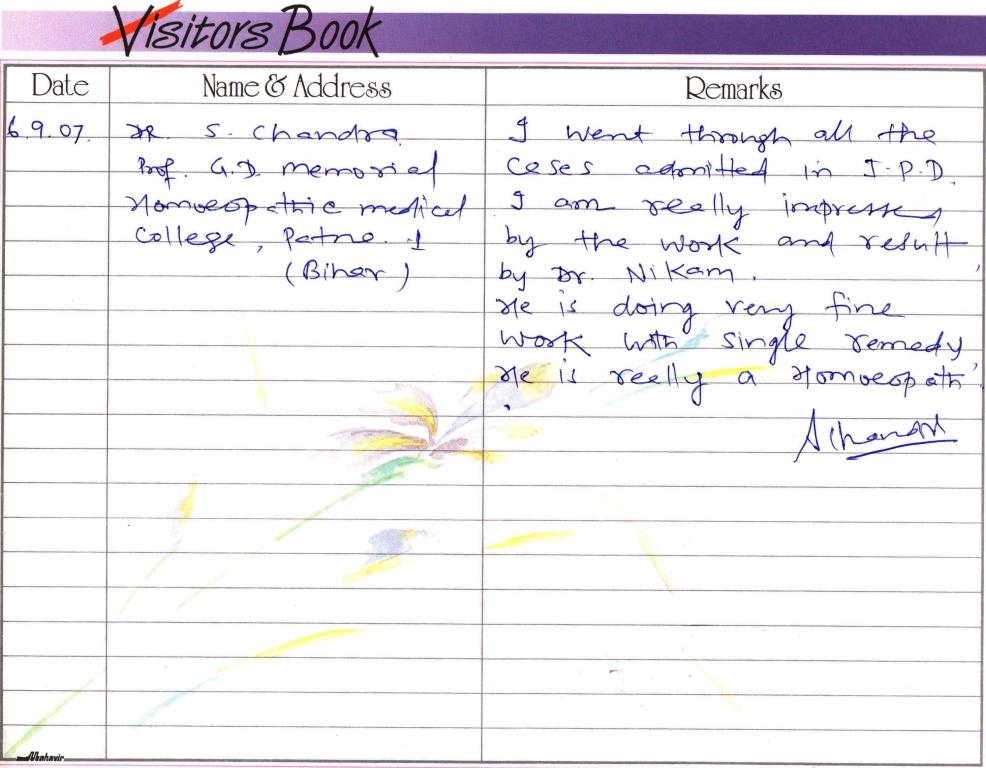 Visitors Book
Date Name & Address Remarks
6.9.07. DR. S. Chandra I went through all the
Prof. G.D. memorial cases admitted in I.P.D.
Homoeopathic medical I am really impresses
College, Patna. 1 by the work and result
(Bihar) by Dr. Nikam.
He is doing very fine
work with single remedy,
He is really a Homoeopath
SChandra
Mahavir